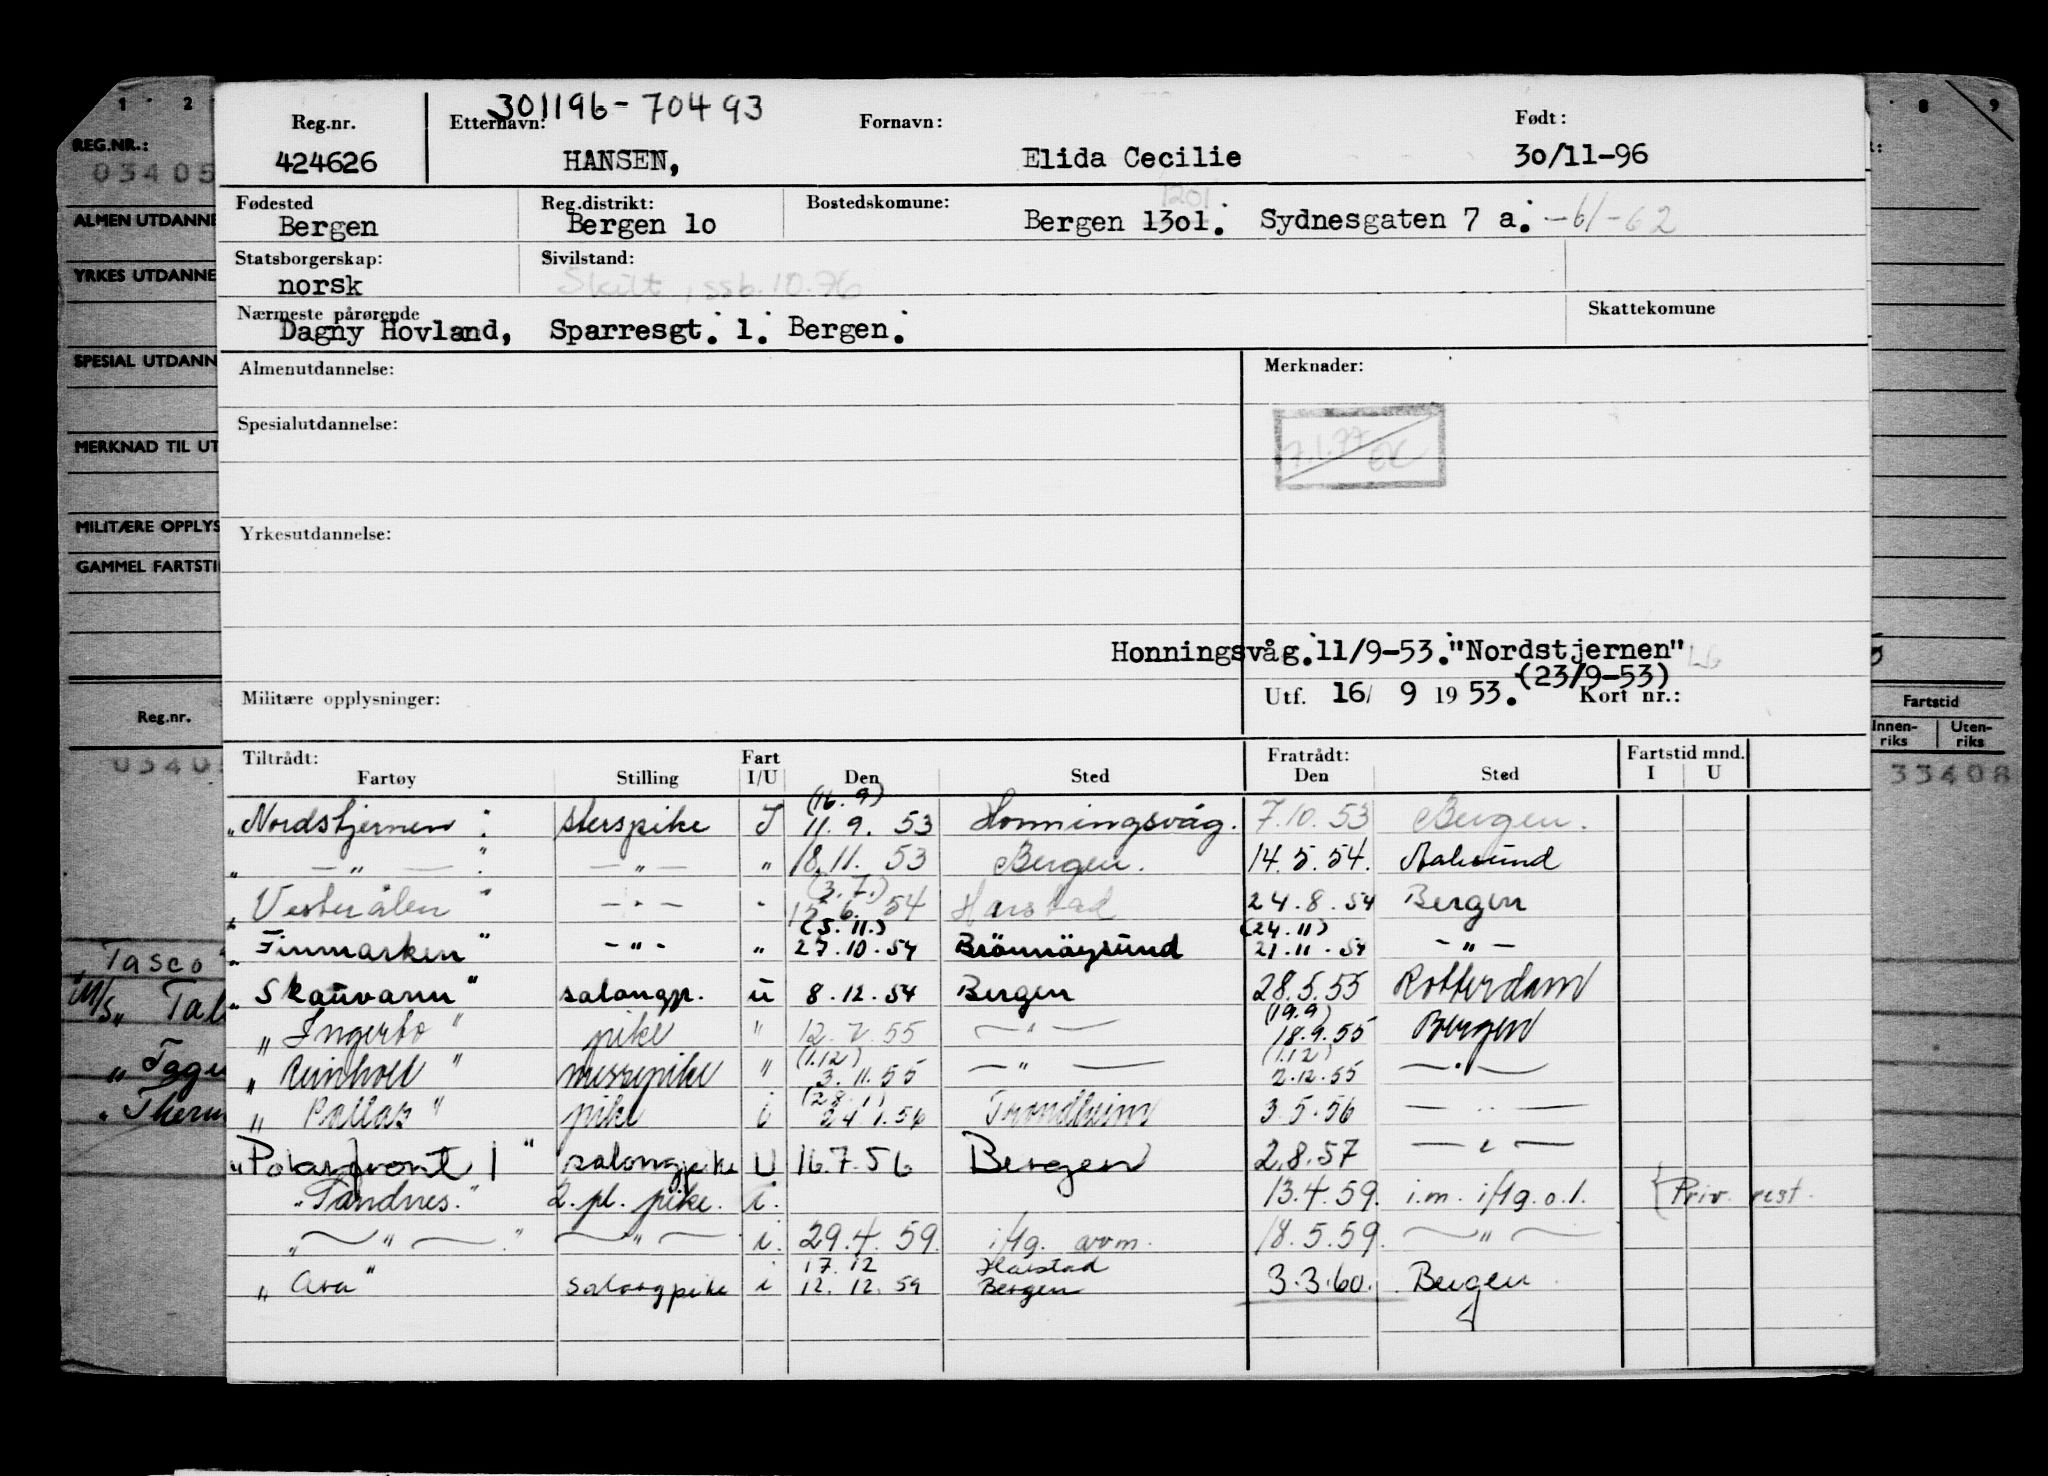 301196-70493
Reg.nr. Etternavn: Fornavn: Født:
424626 HANSEN, Elida Cecilie 30/11-96
Fødested Reg.distrikt: Bostedskomune: 1201
Bergen Bergen 1o Bergen 13o1. Sydnesgaten 7 a. -61-62
Statsborgerskap: Sivilstand:
norsk Skilt, ssb. 10.76
Nærmeste pårørende Skattekomune
Dagny Hovland, Sparresgt. 1. Bergen.
Almenutdannelse: Merknader:
7.1.77
Spesialutdannelse:
Yrkesutdannelse:
Honningsvåg.11/9-53."Nordstjernen"
(23/9-53)
Militære opplysninger: Utf. 16/ 9 19 53. Kort nr.:
Tiltrådt: Fart Fratrådt: Fartstid mnd.
Fartøy Stilling I/U Den Sted Den Sted I U
(16.9)
"Nordstjernen" sterspike I 11.9. 53 Honningsvåg. 7.10.53 Bergen.
" — " — " — " — " 18.11. 53 Bergen. 14.5.54. Aalesund
(3.7.)
"Vesterålen" — " — " 15.6. 54 Harstad 24.8.54 Bergen
(5.11.) (24.11)
"Finmarken" — " — " 27.10.54 Brönnöysund 21.11.54 — " —
"Skauvann" salongp. u 8.12.54 Bergen 28.5.55 Rotterdam
(19.9)
"Ingerto" pike " 12.7.55 — " — 18.9.55 Bergen
(1.12) (1.12)
" " messepike " 3.11.55 — " — 2.12.55 — " —
(28.1)
"Pallas" pike i 24.1.56 Trondheim 3.5.56 — " —
"Polarfront I" salongpike U 16.7.56 Bergen 2.8.57 — " —
"Sandnes" 2. pl. pike. i. 13.4.59. i.m. iflg. o.l. { Priv. rest.
" — " — " — " — i. 29.4.59. iflg. avm. 18.5.59. — " —
17.12 Harstad
"Ara" salongpike i 12.12.59 Bergen 3.3.60. Bergen
1 2
REG.NR.:
03405
ALMEN UTDANNE
YRKES UTDANNE
SPESIAL UTDANN
MERKNAD TIL UT
MILITÆRE OPPLYS
GAMMEL FARTSTI
Reg.nr.
0340
"Tasco
M/S "Tal
"Tagu
"Therm
8 9
Fartstid
Innen-riks Uten-riks
33408